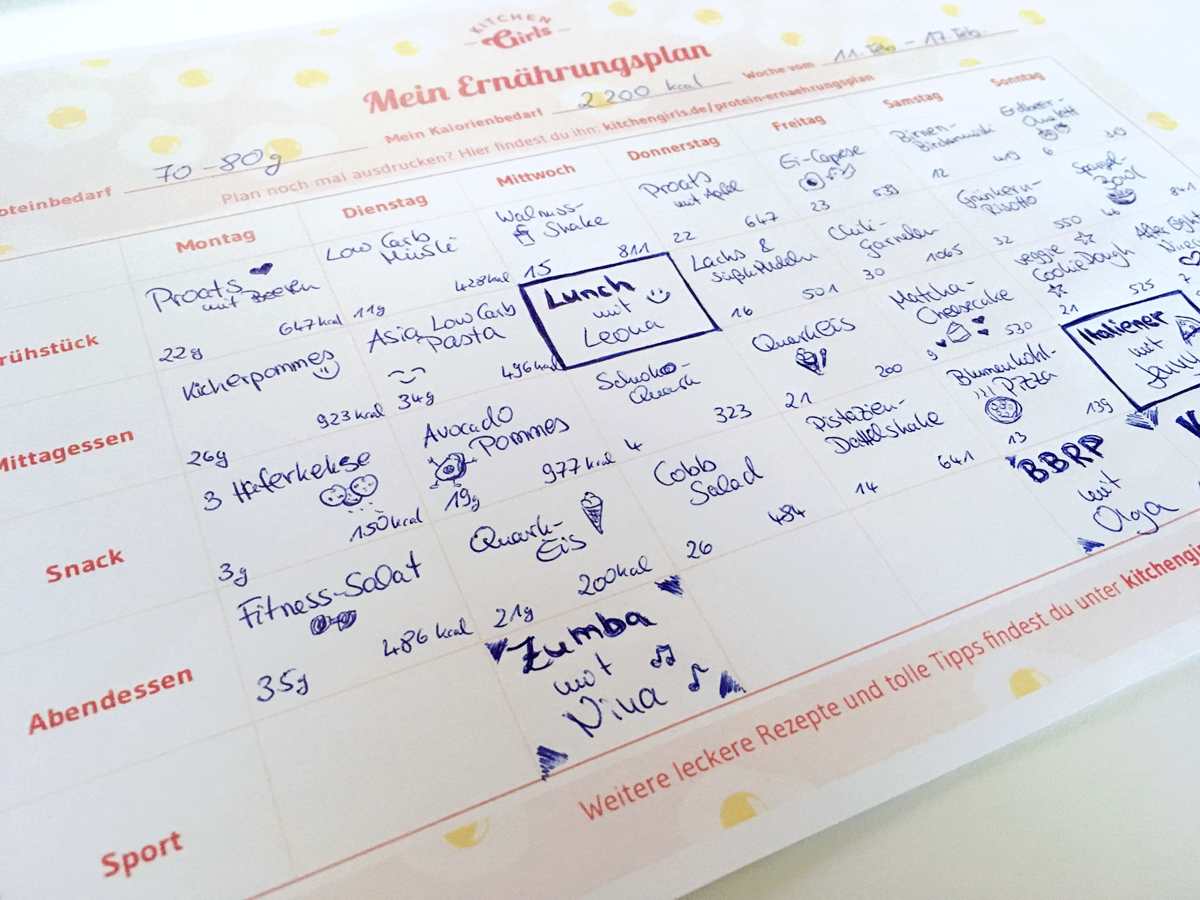 KITCHEN
Girls
Mein Ernährungsplan
oteinbedarf 70-80g Mein Kalorienbedarf 2 200 kcal Woche vom 11. Feb. - 17. Feb.
Plan noch mal ausdrucken? Hier findest du ihn: kitchengirls.de/protein-ernaehrungsplan
Montag Dienstag Mittwoch Donnerstag Freitag Samstag Sonntag
rühstück
Proats
mit Beeren
22g 647 kcal
Low Carb
Müsli
11g 428kcal
Walnuss-
Shake
15 811
Proats
mit Apfel
22 647
Ei-Caprese
23 539
Birnen-
12 449
Erdbeer-
6 30
ittagessen
Kicherpommes
26g 923 kcal
Asia Low Carb
Pasta
34g 496 kcal
Lunch
mit
Leona
Lachs &
Süßk.nudeln
16 501
Chili-
Garnelen
30 1065
Grünkern-
Risotto
32 550
Spargel-
Bowl
46
Snack
3 Haferkekse
3g 150 kcal
Avocado
Pommes
19g 977 kcal
Schoko-
Quark
4 323
Quarkeis
21 200
Matcha-
Cheesecake
9 530
Veggie
Cookie Dough
21 525
After Eight
7
Abendessen
Fitness-Salat
35g 486 kcal
Quark-
Eis
21g 200kcal
Cobb
Salad
26 484
Pistazien-
Dattelshake
14 641
Blumenkohl-
Pizza
13 139
Italiener
mit
Sport
Zumba
mit
Nina
BBRP
mit
Olga
K
Weitere leckere Rezepte und tolle Tipps findest du unter kitchengir